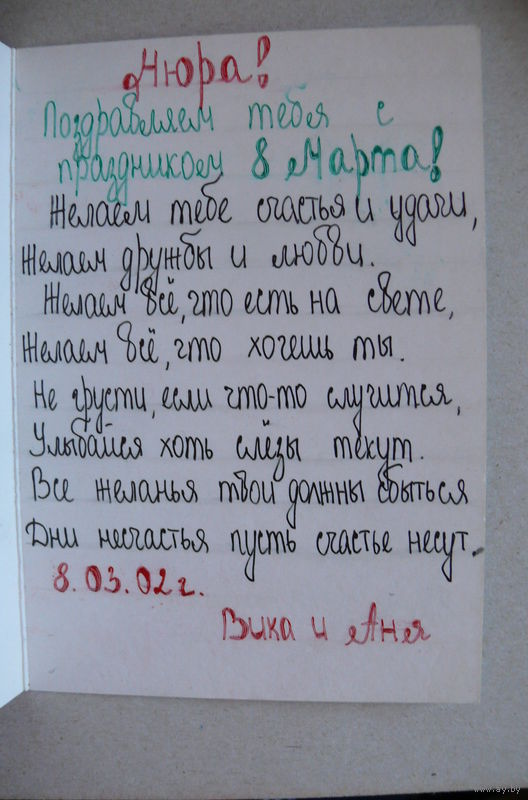 Нюра!
Поздравляем тебя с
праздником 8 Марта!
Желаем тебе счастья и удачи,
Желаем дружбы и любви.
Желаем всё, что есть на свете,
Желаем всё, что хочешь ты.
Не грусти, если что-то случится,
Улыбайся хоть слёзы текут.
Все желанья твои должны сбыться
Дни несчастья пусть счастье несут.
8.03.02 г.
Вика и Аня
www.ay.by